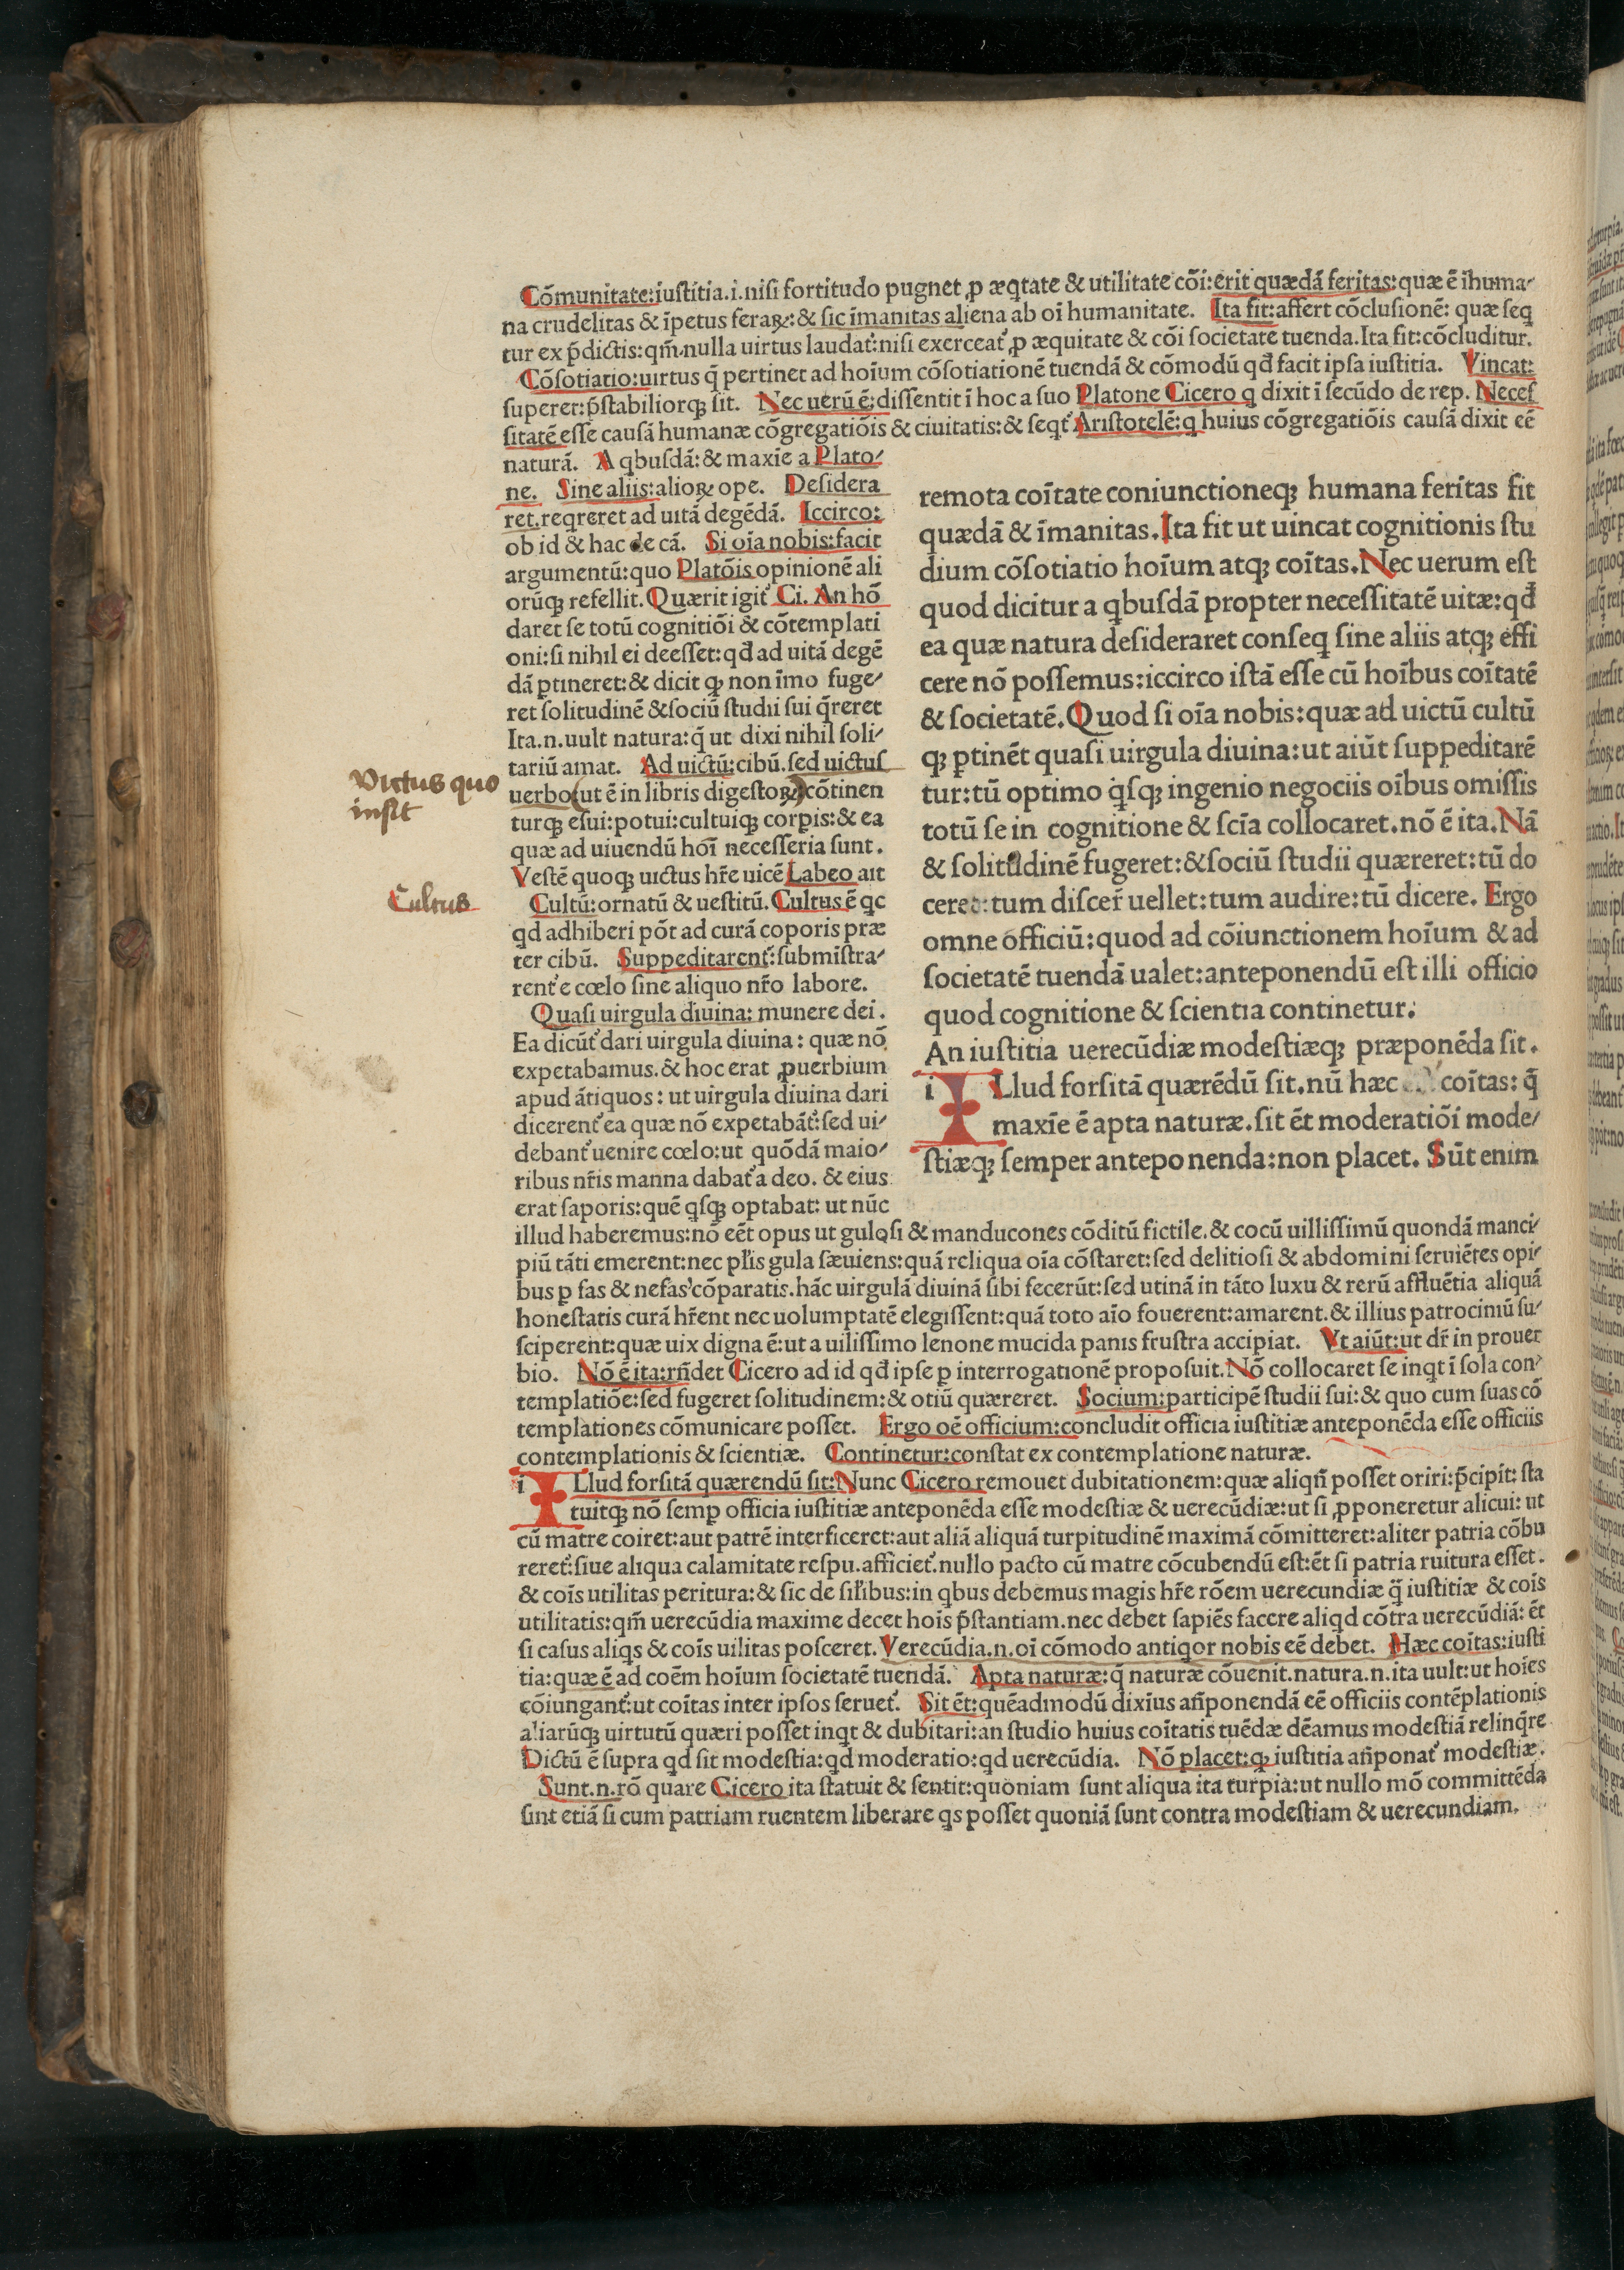 Cõmunitate:iuſtitia.i.niſi fortitudo pugnet ꝓ æqtate & utilitate cõi:erit quædã feritas:quæ ẽ ihuma-
na crudelitas & ĩpetus feraꝝ:& ſic ĩmanitas aliena ab oĩ humanitate. Ita fit:affert cõcluſionẽ: quæ ſeq
tur ex p̃dictis:qm̃.nulla uirtus laudat᷑:niſi exerceat᷑ ꝓ æquitate & cõi ſocietate tuenda.Ita fit:cõcluditur.
Cõſotiatio:uirtus q̃ pertinet ad hoĩum cõſotiationẽ tuendã & cõmodũ qđ facit ipſa iuſtitia. Vincat:
ſuperet:p̃ſtabiliorqꝫ ſit. Nec uerũ ẽ:diſſentit ĩ hoc a ſuo Platone Cicero q dixit ĩ ſecũdo de rep. Neceſ
ſitatẽ eſſe cauſã humanæ cõgregatiõis & ciuitatis:& ſeqt᷑ Ariſtotelẽ:q huius cõgregatiõis cauſã dixit eẽ
naturã. A qbuſdã:& maxĩe a Plato-
ne. Sine aliis:alioꝝ ope. Deſidera
ret.reqreret ad uitã degẽdã. Iccirco:
ob id & hac de cã. Si oĩa nobis:facit
argumentũ:quo Platõis opinionẽ ali
orũqꝫ refellit.Quærit igit᷑ Ci. An hõ
daret ſe totũ cognitiõi & cõtemplati
oni:ſi nihil ei deeſſet:qđ ad uitã degẽ
dã ꝑtineret:& dicit ꝙ non ĩmo fuge-
ret ſolitudinẽ &ſociũ ſtudii ſui q̃reret
Ita.n.uult natura:q̃ ut dixi nihil ſoli-
tariũ amat. Ad uictũ:cibũ.ſed uictuſ
uerbo(ut ẽ in libris digeſtoꝝ)cõtinen
turqꝫ eſui:potui:cultuiqꝫ corꝑis:& ea
quæ ad uiuendũ hoĩ neceſſeria ſunt.
Veſtẽ quoqꝫ uictus hr̃e uicẽ Labeo ait
Cultũ:ornatũ & ueſtitũ.Cultus ẽ qc
qd adhiberi põt ad curã coporis præ
ter cibũ. Suppeditarent᷑:ſubmiſtra-
rent᷑ e cœlo ſine aliquo nr̃o labore.
Quaſi uirgula diuina: munere dei.
Ea dicũt᷑ dari uirgula diuina: quæ nõ
expetabamus.& hoc erat ꝓuerbium
apud ãtiquos: ut uirgula diuina dari
dicerent᷑ ea quæ nõ expetabãt᷑:ſed ui-
debant᷑ uenire cœlo:ut quõdã maio-
ribus nr̃is manna dabat᷑ a deo. & eius
erat ſaporis:quẽ qſqꝫ optabat: ut nũc
Victus quo
Cultus
remota coĩtate coniunctioneqꝫ humana feritas fit
quædã & ĩmanitas.Ita fit ut uincat cognitionis ſtu
dium cõſotiatio hoĩum atqꝫ coĩtas.Nec uerum eſt
quod dicitur a qbuſdã propter neceſſitatẽ uitæ:qđ
ea quæ natura deſideraret conſeq ſine aliis atqꝫ effi
cere nõ poſſemus:iccirco iſtã eſſe cũ hoĩbus coĩtatẽ
& ſocietatẽ.Quod ſi oĩa nobis:quæ ad uictũ cultũ
qꝫ ꝑtinẽt quaſi uirgula diuina:ut aiũt ſuppeditarẽ
tur:tũ optimo qſqꝫ ingenio negociis oĩbus omiſſis
totũ ſe in cognitione & ſcĩa collocaret.nõ ẽ ita.Nã
& ſolitudinẽ fugeret:&ſociũ ſtudii quæreret:tũ do
cere:tum diſcer̃ uellet:tum audire:tũ dicere. Ergo
omne officiũ:quod ad cõiunctionem hoĩum & ad
ſocietatẽ tuendã ualet:anteponendũ eſt illi officio
quod cognitione & ſcientia continetur:
An iuſtitia uerecũdiæ modeſtiæqꝫ præponẽda ſit.
iLlud forſitã quærẽdũ ſit.nũ hæc coĩtas: q̃
maxĩe ẽ apta naturæ.ſit ẽt moderatiõi mode-
ſtiæqꝫ ſemper anteponenda:non placet. Sũt enim
illud haberemus:nõ eẽt opus ut guloſi & manducones cõditũ fictile.& cocũ uilliſſimũ quondã manci-
piũ tãti emerent:nec pl̃is gula ſæuiens:quã reliqua oĩa cõſtaret:ſed delitioſi & abdomini ſeruiẽtes opi-
bus ꝑ fas & nefas cõparatis.hãc uirgulã diuinã ſibi fecerũt:ſed utinã in tãto luxu & rerũ affluẽtia aliquã
honeſtatis curã hr̃ent nec uolumptatẽ elegiſſent:quã toto aĩo fouerent:amarent.& illius patrociniũ ſu-
ſciperent:quæ uix digna ẽ:ut a uiliſſimo lenone mucida panis fruſtra accipiat. Vt aiũt:ut dr̃ in prouer
bio. Nõ ẽ ita:rñdet Cicero ad id qđ ipſe ꝑ interrogationẽ propoſuit.Nõ collocaret ſe inqt ĩ ſola con-
templatiõe:ſed fugeret ſolitudinem:& otiũ quæreret. Socium:participẽ ſtudii ſui:& quo cum ſuas cõ
templationes cõmunicare poſſet. Ergo oẽ officium:concludit officia iuſtitiæ anteponẽda eſſe officiis
contemplationis & ſcientiæ. Continetur:conſtat ex contemplatione naturæ.
iLlud forſitã quærendũ ſit:Nunc Cicero remouet dubitationem:quæ aliqñ poſſet oriri:p̃cipit: ſta
tuitqꝫ nõ ſemꝑ officia iuſtitiæ anteponẽda eſſe modeſtiæ & uerecũdiæ:ut ſi ꝓponeretur alicui: ut
cũ matre coiret:aut patrẽ interficeret:aut aliã aliquã turpitudinẽ maximã cõmitteret:aliter patria cõbu
reret᷑:ſiue aliqua calamitate reſpu.afficiet᷑.nullo pacto cũ matre cõcubendũ eſt:ẽt ſi patria ruitura eſſet.
& coĩs utilitas peritura:& ſic de ſil̃ibus:in qbus debemus magis hr̃e rõem uerecundiæ q̃ iuſtitiæ & coĩs
utilitatis:qm̃ uerecũdia maxime decet hoĩs p̃ſtantiam.nec debet ſapiẽs facere aliqd cõtra uerecũdiã: ẽt
ſi caſus aliqs & coĩs uilitas poſceret.Verecũdia.n.oĩ cõmodo antiqor nobis eẽ debet. Hæc coĩtas:iuſti
tia:quæ ẽ ad coẽm hoĩum ſocietatẽ tuendã. Apta naturæ:q̃ naturæ cõuenit.natura.n.ita uult:ut hoĩes
cõiungant᷑:ut coĩtas inter ipſos ſeruet᷑. Sit ẽt:quẽadmodũ dixĩus añponendã eẽ officiis contẽplationis
aliarũqꝫ uirtutũ quæri poſſet inqt & dubitari:an ſtudio huius coĩtatis tuẽdæ dẽamus modeſtiã relinq̃re
Dictũ ẽ ſupra qd ſit modeſtia:qd moderatio:qd uerecũdia. Nõ placet:ꝙ iuſtitia añponat᷑ modeſtiæ.
Sunt.n.rõ quare Cicero ita ſtatuit & ſentit:quoniam ſunt aliqua ita turpia:ut nullo mõ committẽda
ſint etiã ſi cum patriam ruentem liberare qs poſſet quoniã ſunt contra modeſtiam & uerecundiam.